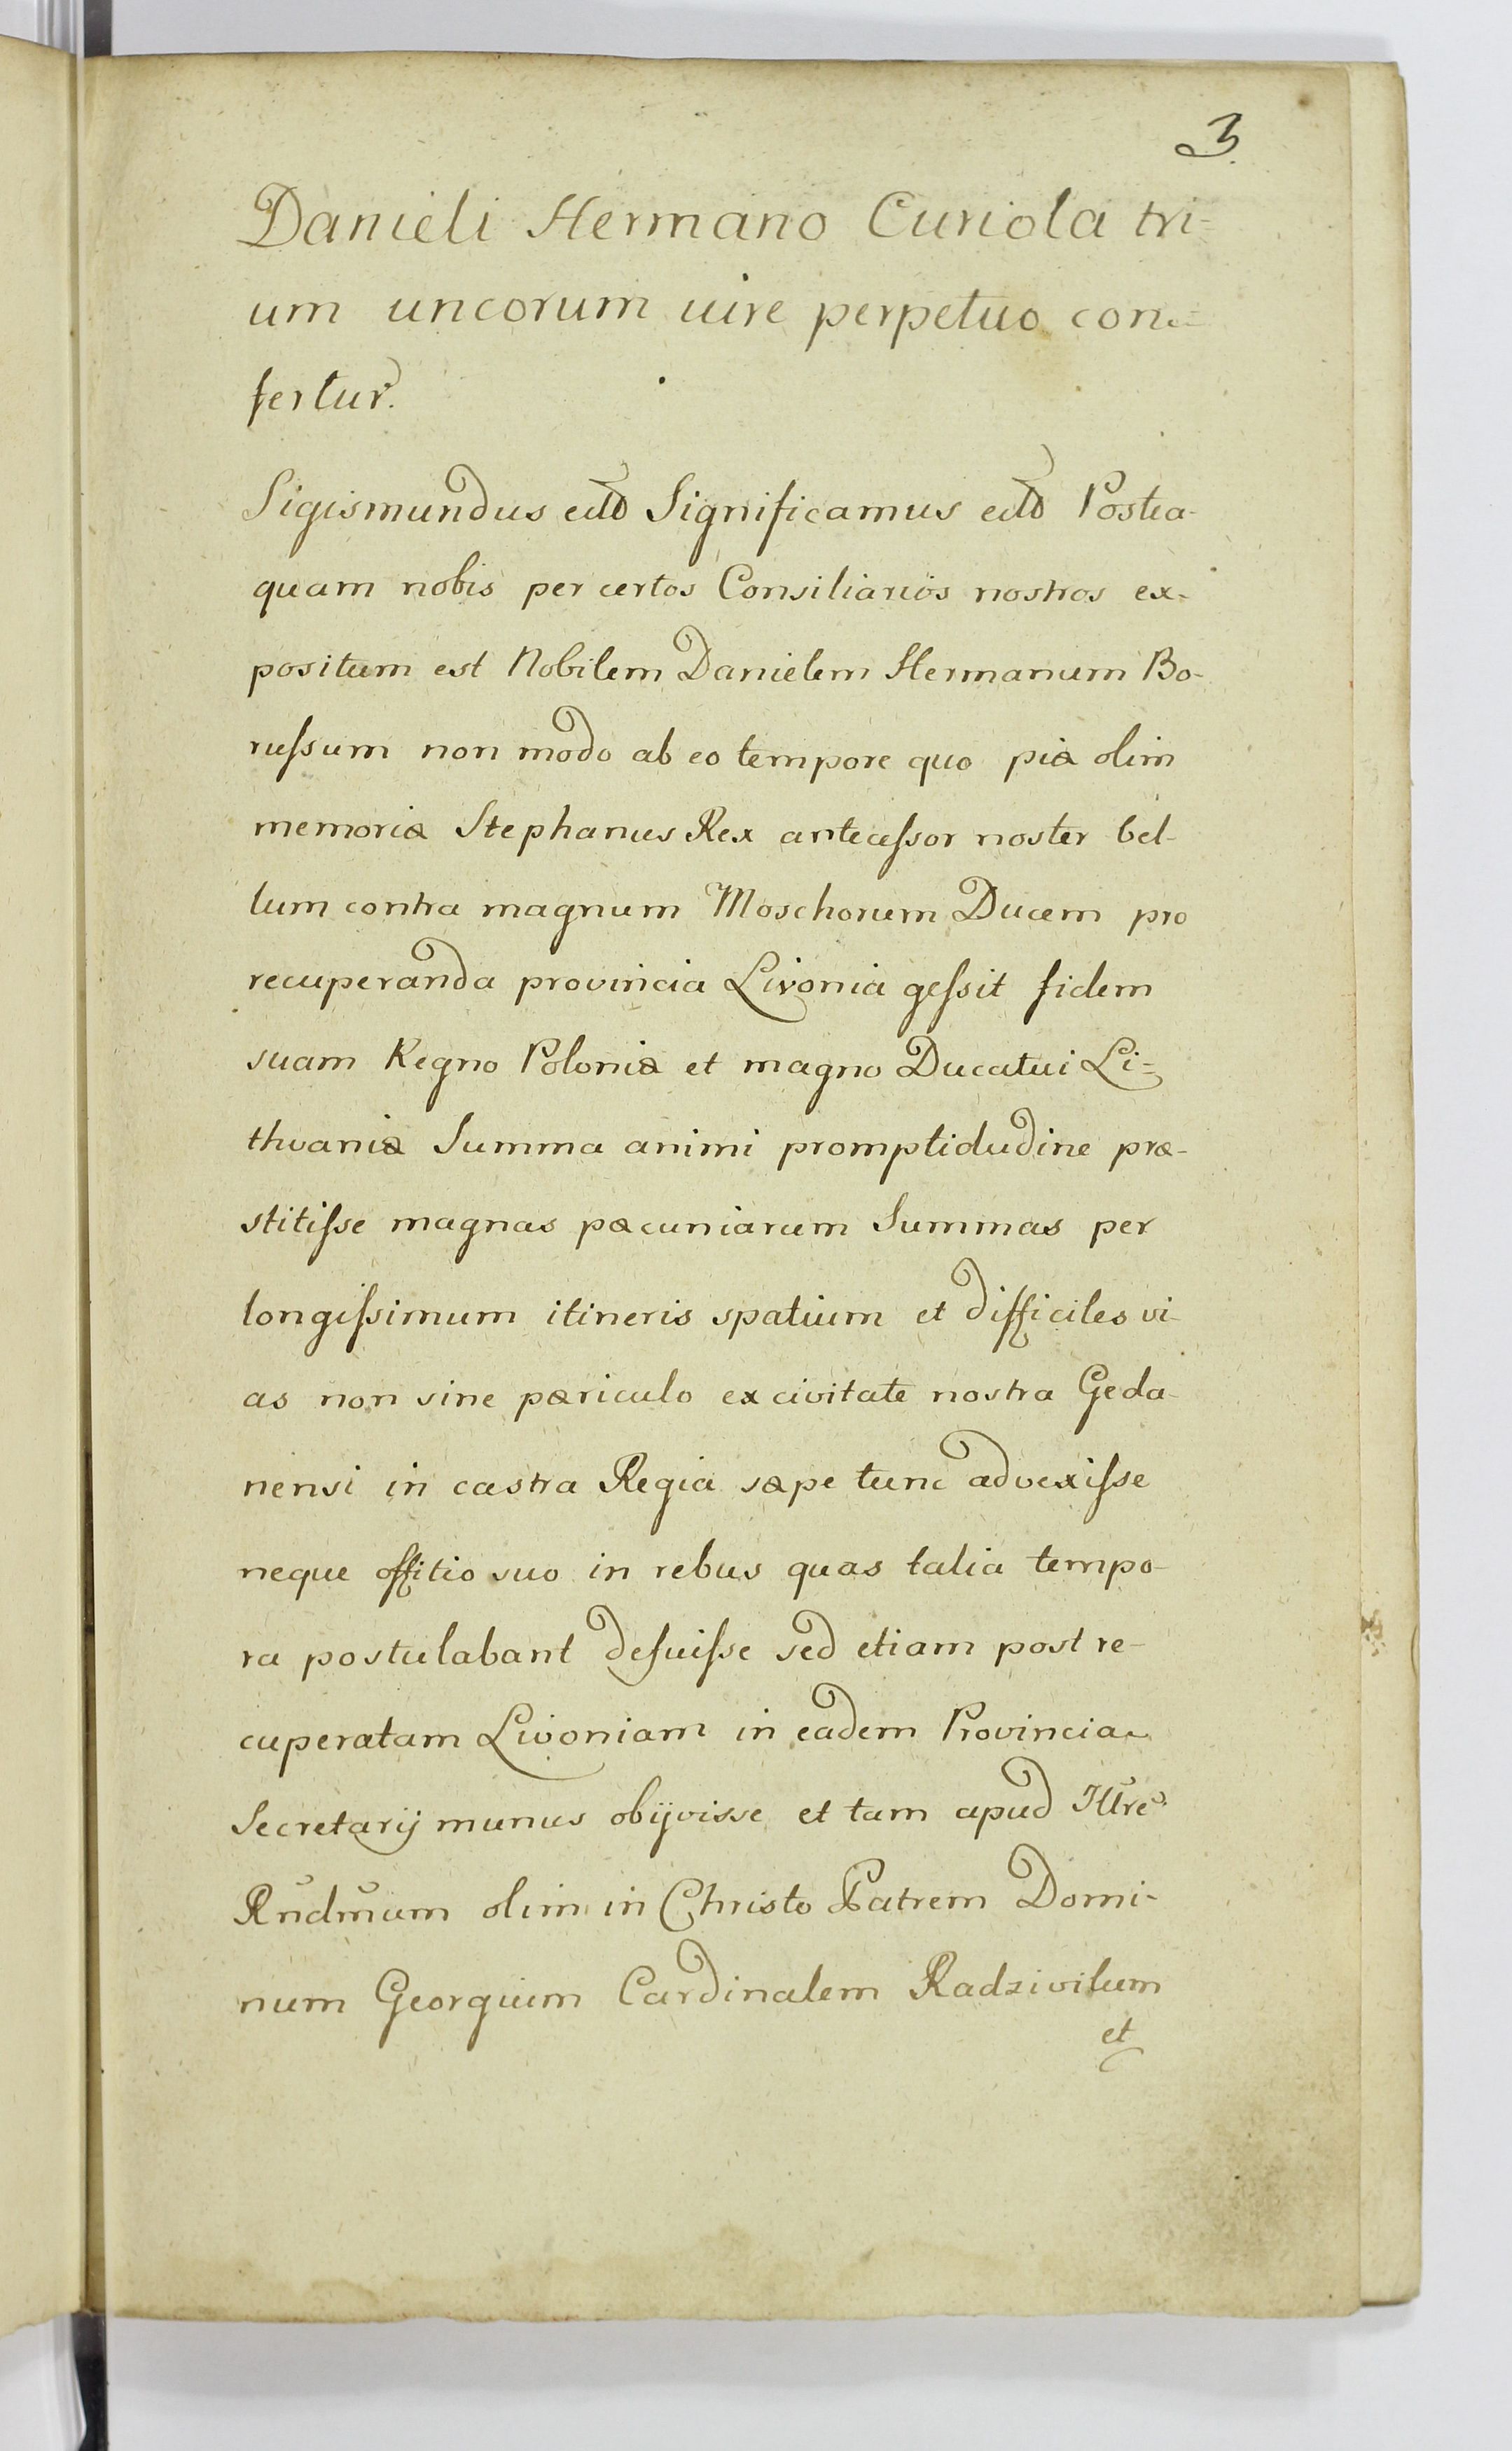 3.
Danieli Hermano Curiola tri-
um uncorum iure perpetuo con=
fertur.
Sigismundus ettc Significamus ettc Postea-
quam nobis per certos Consiliarios nostros ex-
positum est Nobilem Danielem Hermanum Bo-
ruſsum non modo ab eo tempore quo piæ olim
memoriæ Stephanus Rex anteceſsor noster bel-
lum contra magnum Moschorum Ducem pro
recuperanda provincia Livonia geſsit fidem
suam Regno Poloniæ et magno Ducatui Li=
thvaniæ Summa animi promptidudine præ-
stitiſse magnas pæcuniarum Summas per
longiſsimum itineris spatium et difficiles vi-
as non sine pæriculo ex civitate nostra Geda-
nensi in castra Regia sæpe tunc advexiſse
neque offitio suo in rebus quas talia tempo-
ra postulabant defuiſse sed etiam post re-
cuperatam Livoniam in eadem Provincia
Secretarij munus obijvisse et tam apud Illre
Rndmum olim in Christo Patrem Domi-
num Georgium Cardinalem Radzivilum
et